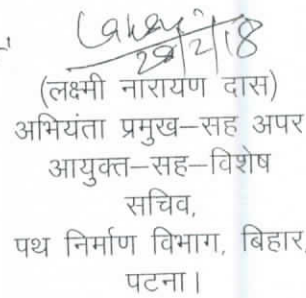 28/2/18
(लक्ष्मी नारायण दास)
अभियंता प्रमुख–सह अपर
आयुक्त–सह–विशेष
सचिव,
पथ निर्माण विभाग, बिहार,
पटना।